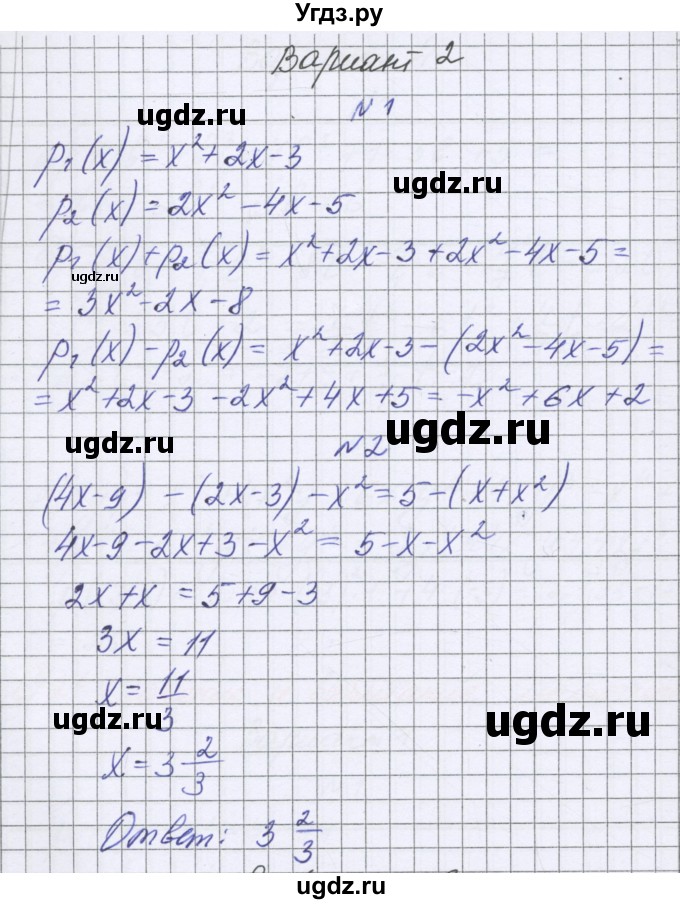 Угдз.ру
Вариант 2
ugdz.ru
N 1
p₁(x) = x² + 2x - 3
ugdz.ru
p₂(x) = 2x² - 4x - 5
p₁(x) + p₂(x) = x² + 2x - 3 + 2x² - 4x - 5 =
ugdz.ru
= 3x² - 2x - 8
p₁(x) - p₂(x) = x² + 2x - 3 - (2x² - 4x - 5) =
= x² + 2x - 3 - 2x² + 4x + 5 = -x² + 6x + 2
ugdz.ru
ugdz.ru
N 2
(4x - 9) - (2x - 3) - x² = 5 - (x + x²)
4x - 9 - 2x + 3 - x² = 5 - x - x²
2x + x = 5 + 9 - 3
3x = 11
x = 11/3
ugdz.ru
ugdz.ru
x = 3 2/3
Ответ: 3 2/3
ugdz.ru